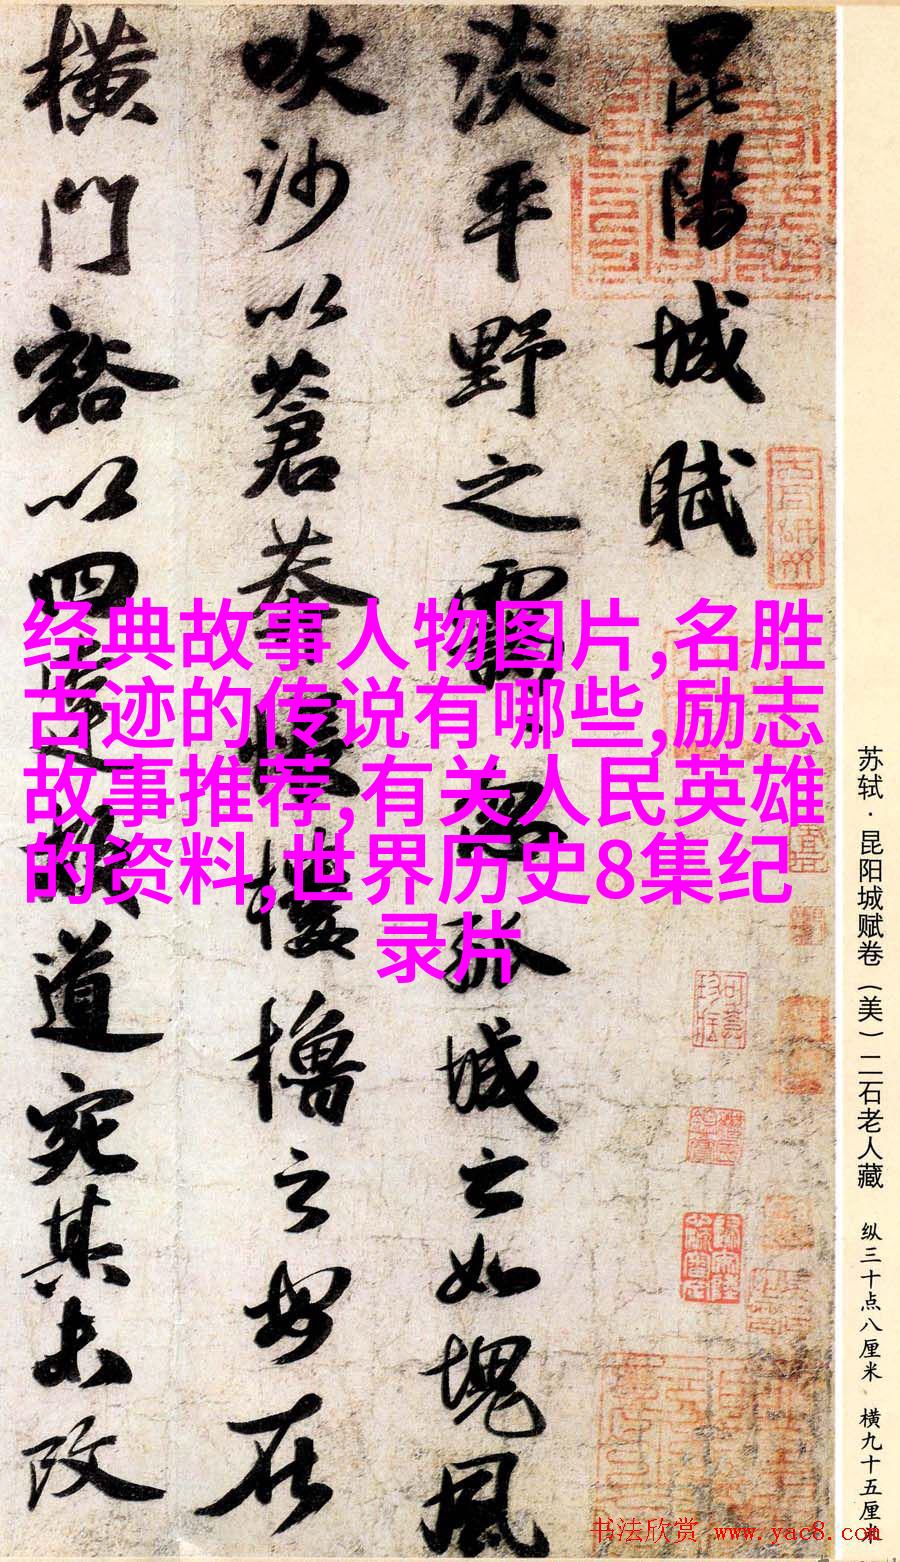 苏轼·昆阳城赋卷(美)二石老人藏 纵三十点八厘米 横九十五厘米
昆陽城賦
淡平野之靄忽孤城之如塊風
吹沙以蒼莽悵樓櫓之安在
橫門豁以四達故道宛其未改
经典故事人物图片,名胜
古迹的传说有哪些,励志
故事推荐,有关人民英雄
的资料,世界历史8集纪
录片
书法欣赏 www.yac8.com